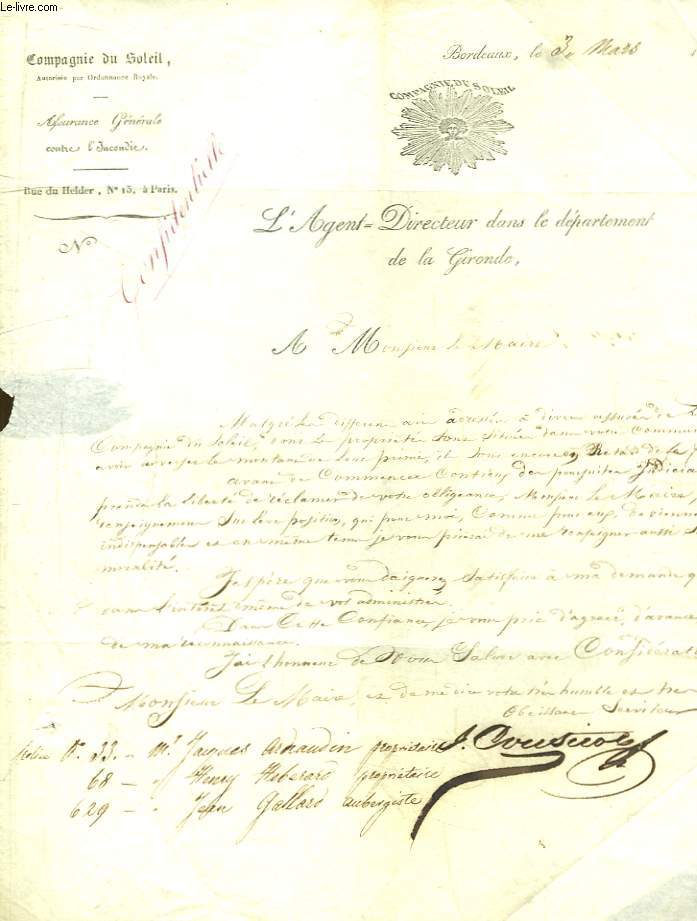 Le-livre.com
Compagnie du Soleil,
Autorisée par Ordonnance Royale.
Assurance Générale
contre l'Incendie.
Rue du Helder, Nº 15, à Paris.
Nº
Confidentielle
Bordeaux, le 3. Mars
COMPAGNIE DU SOLEIL
L'Agent=Directeur dans le département
de la Gironde,
A Monsieur le Maire
Malgré la différens avis adressés à divers assurés de la
Compagnie du Soleil, dont les propriétés sont situées dans votre Commune
avoir à verser le montant de leur prime, ils sont encore en Retard de la
avant de Commencer Contre eux des poursuites Judiciai
prendre la liberté de réclamer de votre obligeance, Monsieur le Maire
renseignemens sur leur position, qui pour moi, Comme pour eux, deviennent
indispensables et en même tems je vous prierai de me renseigner aussi
moralité.
J'espère que vous daignerez satisfaire à ma demande
dans l'intérêt même de vos administrés.
Dans Cette Confiance, je vous prie d'agréer, d'avance
de ma reconnaissance.
J'ai l'honneur de Vous Saluer avec Considérati
Monsieur Le Maire, et de me dire votre très humble et très
Obéissant Serviteur
Police Nº. 33. - Mr. Jacques Arnaudin propriétaire
68 - " Henry Heberard propriétaire
629 - " Jean Gallard aubergiste